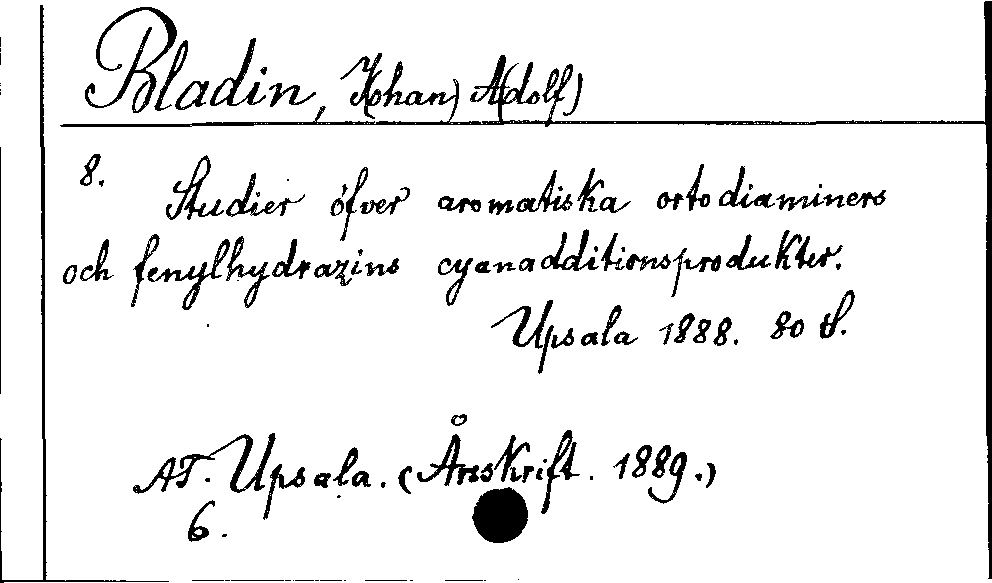 Bladin, J(ohan) A(dolf)
8. Studier öfver aromatiska ortodiaminers
och fenylhydrazins cyanadditionsprodukter.
Upsala 1888. 80 S.
AT. Upsala. (Årsskrift. 1889.)
6.